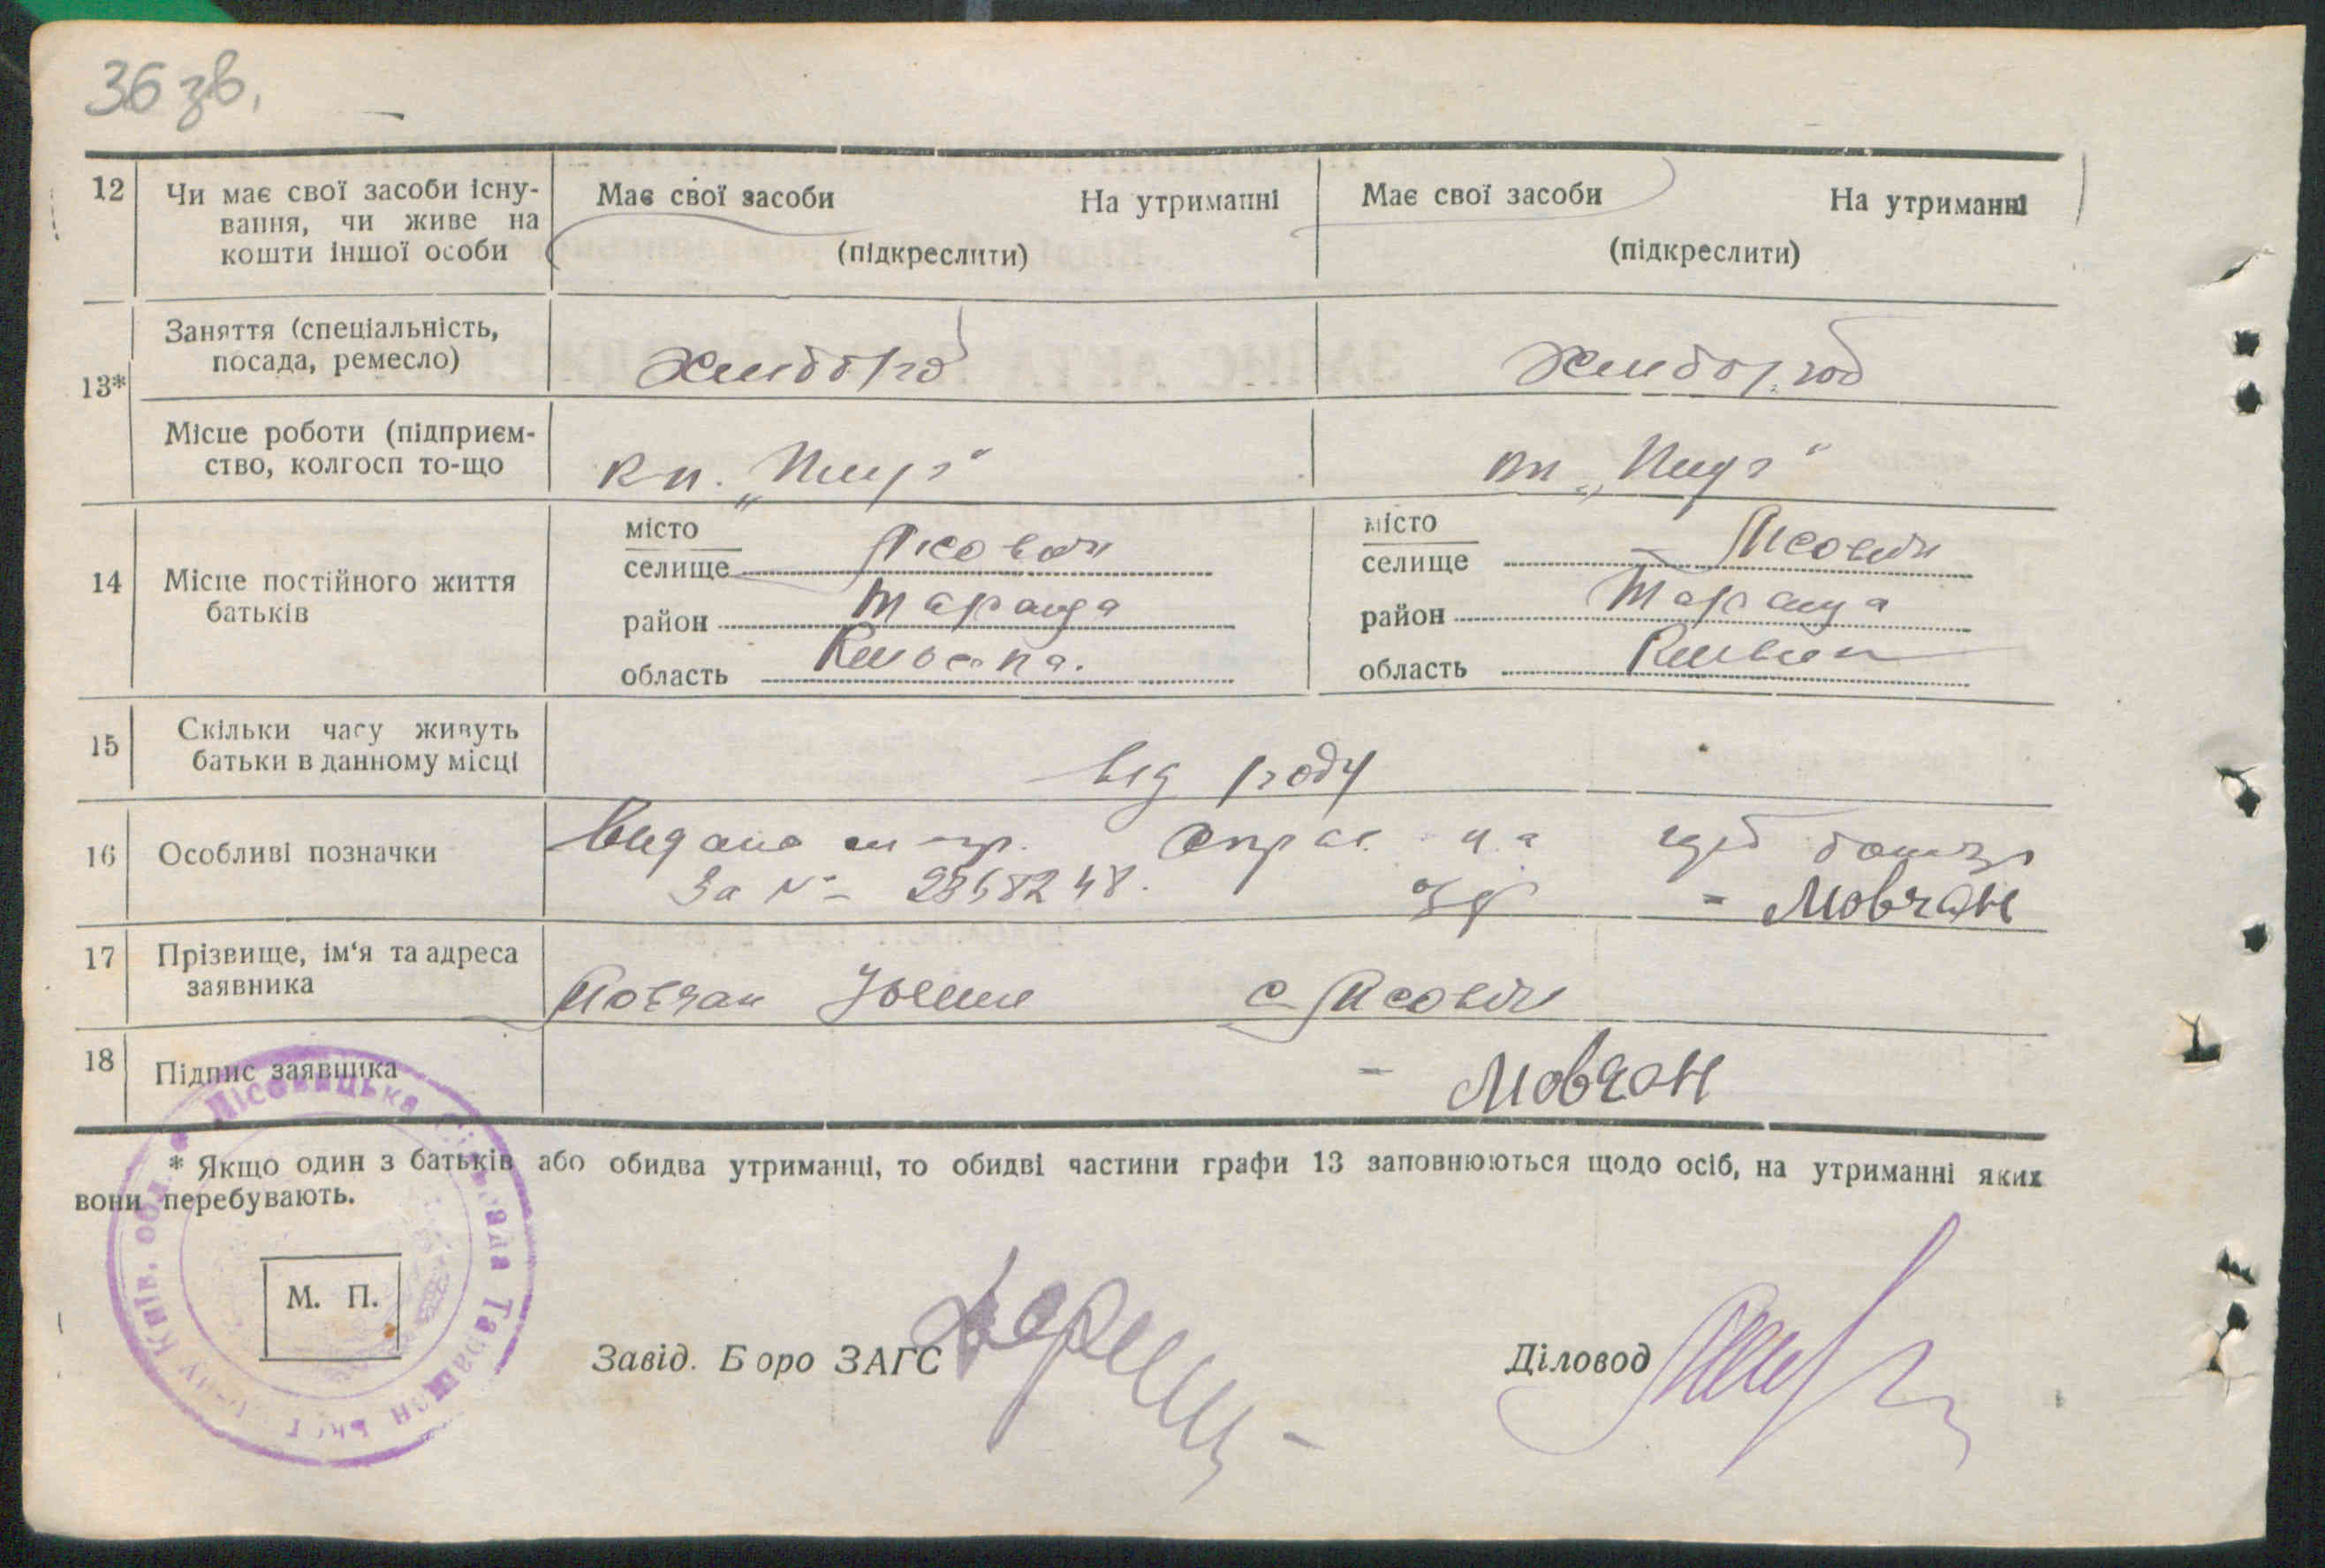 36 зв.
12 Чи має свої засоби існу-
вання, чи живе на
кошти іншої особи
Має свої засоби На утриманні
(підкреслити)
Має свої засоби На утриманні
(підкреслити)
13*
Заняття (спеціальність,
посада, ремесло)
хлибороб
хлибороб
Місце роботи (підприєм-
ство, колгосп то-що
14 Місце постійного життя
батьків
місто
селище Лісовичі
район Тараща
область Київська.
місто
селище Лісовичі
район Тараща
область Київськ
15 Скільки часу живуть
батьки в данному місці
від роду
16 Особливі позначки
Видано
За № 2368248. - Мовчан
17 Прізвище, ім'я та адреса
заявника
Мовчан с Лісовичі
18 Підпис заявника
- Мовчан
* Якщо один з батьків або обидва утриманці, то обидві частини графи 13 заповнюються щодо осіб, на утриманні яких
вони перебувають.
М. П.
Завід. Бюро ЗАГС
Діловод
Лісовицька Сільрада Таращанського р-ну Київ. обл.